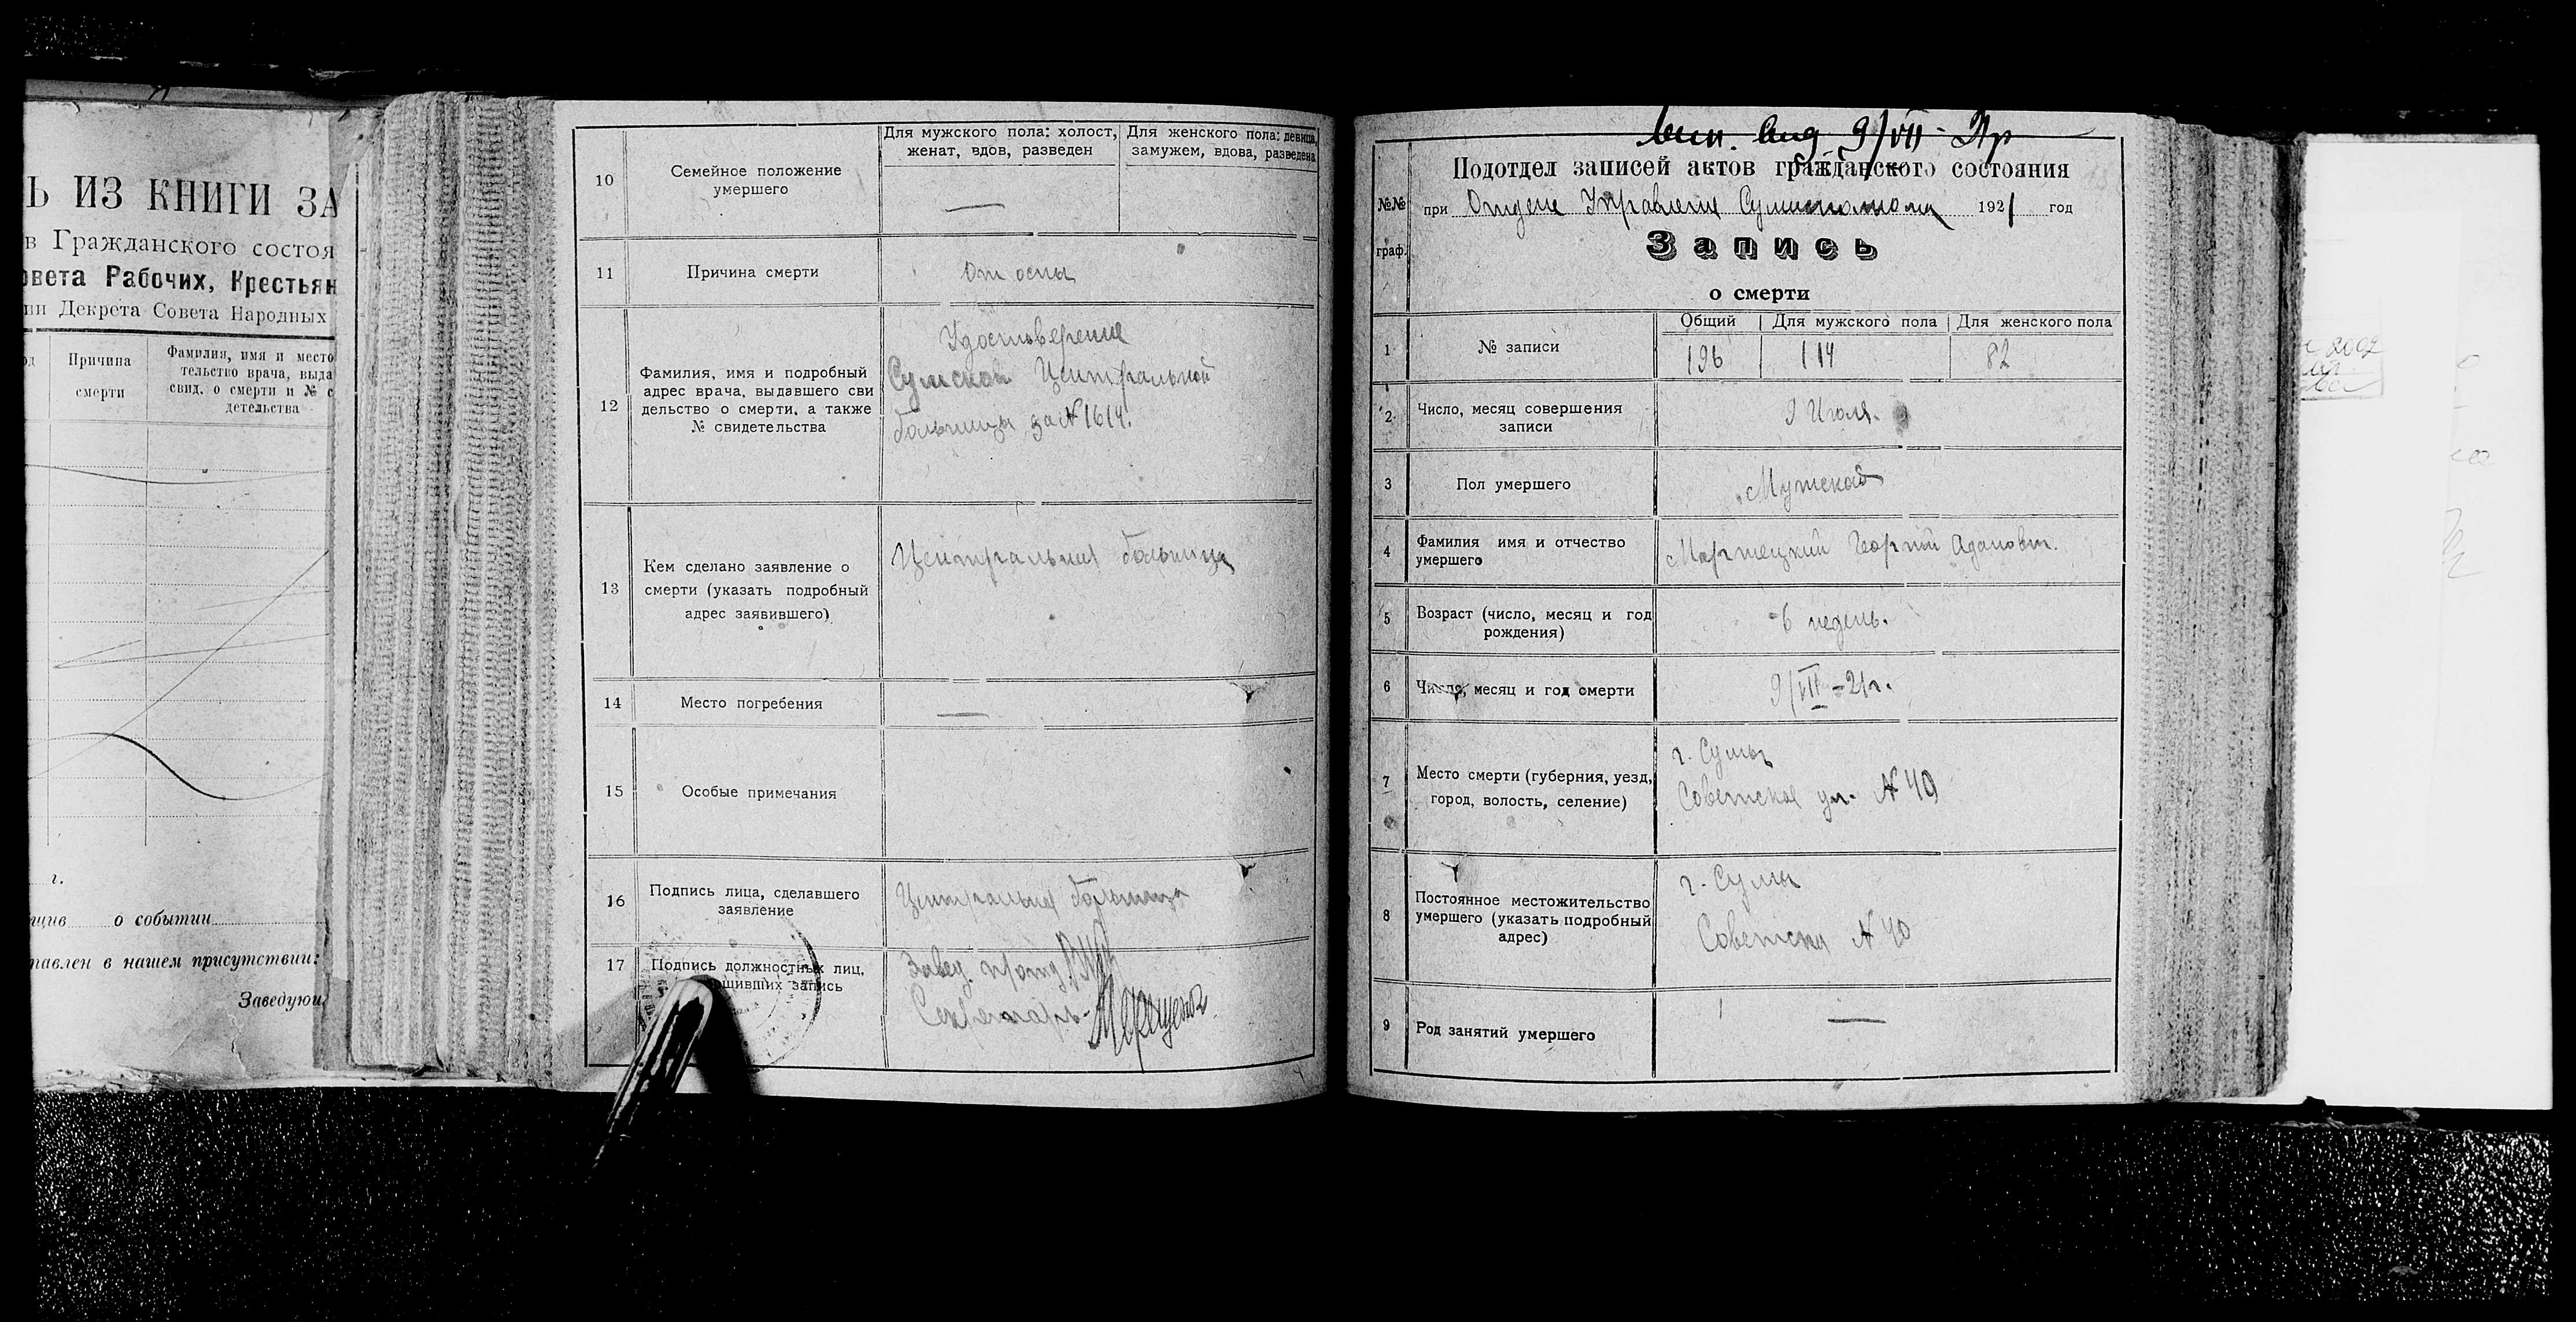 Ь ИЗ КНИГИ ЗА
в Гражданского состоя
овета Рабочих, Крестьян
ии Декрета Совета Народных
Причина
смерти
Фамилия, имя и место
тельство врача, выда
свид. о смерти и № с
детельства
г.
о событии
тавлен в нашем присутствии:
Заведую
10
Семейное положение
умершего
Для мужского пола: холост,
женат, вдов, разведен
Для женского пола: девица,
замужем, вдова, разведена
—
11
Причина смерти
От оспы
12
Фамилия, имя и подробный
адрес врача, выдавшего сви
дельство о смерти, а также
№ свидетельства
Удостоверение
Сумской Центральной
больницы за № 1614.
13
Кем сделано заявление о
смерти (указать подробный
адрес заявившего)
Центральная больница
14
Место погребения
—
15
Особые примечания
16
Подпись лица, сделавшего
заявление
Центральная больница
17
Подпись должностных лиц,
шивших запись
Завед.
Секретарь
9/VII
Подотдел записей актов гражданского состояния
№№
граф.
при Отделе Управления 1921 год
Запись
о смерти
1
№ записи
Общий
Для мужского пола
Для женского пола
196
114
82
2
Число, месяц совершения
записи
9 Июля.
3
Пол умершего
Мужской
4
Фамилия имя и отчество
умершего
Георгий Адамович.
5
Возраст (число, месяц и год
рождения)
6 недель.
6
Число, месяц и год смерти
9/VII-21г.
7
Место смерти (губерния, уезд,
город, волость, селение)
г. Сумы
Советская ул. № 49
8
Постоянное местожительство
умершего (указать подробный
адрес)
г. Сумы
Советская №
9
Род занятий умершего
—